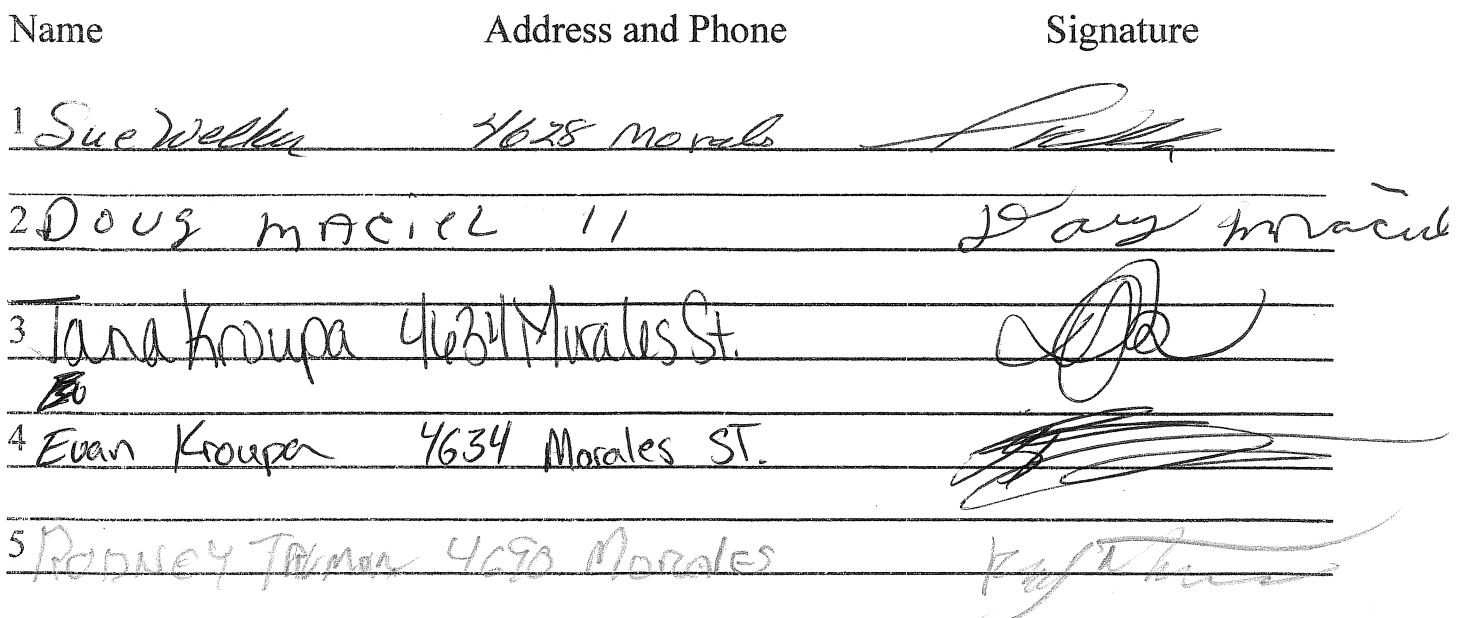 Name Address and Phone Signature
1 Sue Welker 4628 Morales
2 Doug MACiEL 11 Doug Maciel
3 Tana Kroupa 4634 Morales St.
4 Evan Kroupa 4634 Morales ST.
5 RODNEY 4690 MORALES